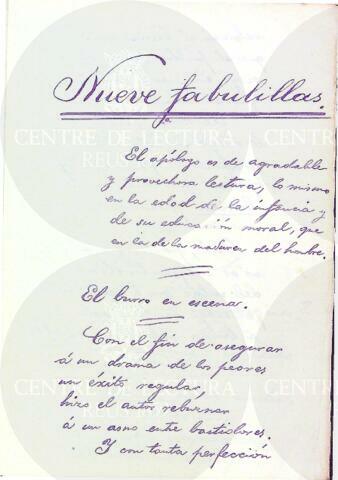 Nueve fabulillas.
El apólogo es de agradable
y provechosa lectura, lo mismo
en la edad de la infancia y
de su educación moral, que
en la de la madurez del hombre.
El burro en escena.
Con el fin de asegurar
á un drama de los peores
un éxito regular,
hizo el autor rebuznar
á un asno entre bastidores.
Y con tanta perfección
CENTRE DE LECTURA
REUS
CENTRE DE LECTURA
REUS